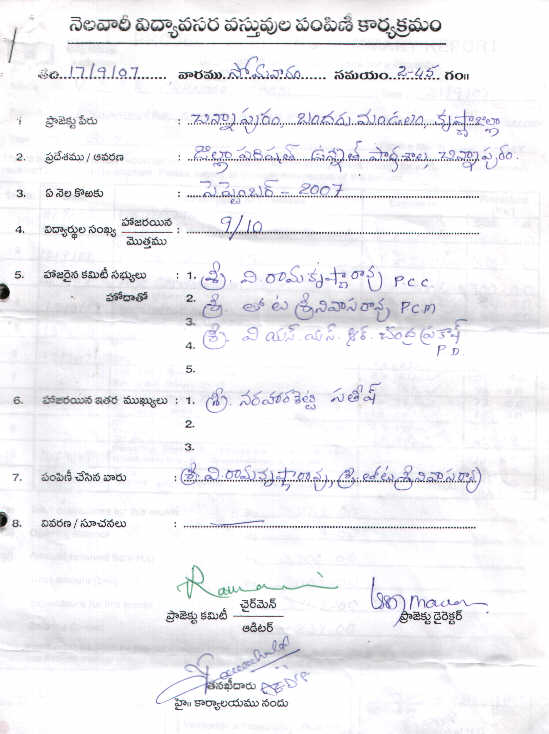 నెలవారీ విద్యావసర వస్తువుల పంపిణీ కార్యక్రమం
తేది. 17/9/07 వారము. సోమవారం సమయం. 2-45 గం॥
1. ప్రాజెక్టు పేరు : చిన్నాపురం, బందరు మండలం, కృష్ణాజిల్లా
2. ప్రదేశము / ఆవరణ : జిల్లా పరిషత్ ఉన్నత పాఠశాల, చిన్నాపురం.
3. ఏ నెల కొఱకు : సెప్టెంబర్ - 2007
4. విద్యార్థుల సంఖ్య హాజరయిన / మొత్తము : 9/10
5. హాజరైన కమిటీ సభ్యులు : 1. శ్రీ. వి. రామకృష్ణారావు P.C.C.
హోదాతో 2. శ్రీ. తోట శ్రీనివాసరావు P.C.M
3.
4. శ్రీ. వి. యస్. యస్. ఆర్. చంద్ర ప్రకాష్
P.D.
5.
6. హాజరయిన ఇతర ముఖ్యులు : 1. శ్రీ. నరహరశెట్టి సతీష్
2.
3.
7. పంపిణీ చేసిన వారు : శ్రీ వి. రామకృష్ణారావు, శ్రీ తోట శ్రీనివాసరావు
8. వివరణ / సూచనలు :
ప్రాజెక్టు కమిటీ ఛైర్‌మెన్ / ఆడిటర్
ప్రాజెక్టు డైరెక్టర్
తనఖీదారు
హె॥ కార్యాలయము నందు